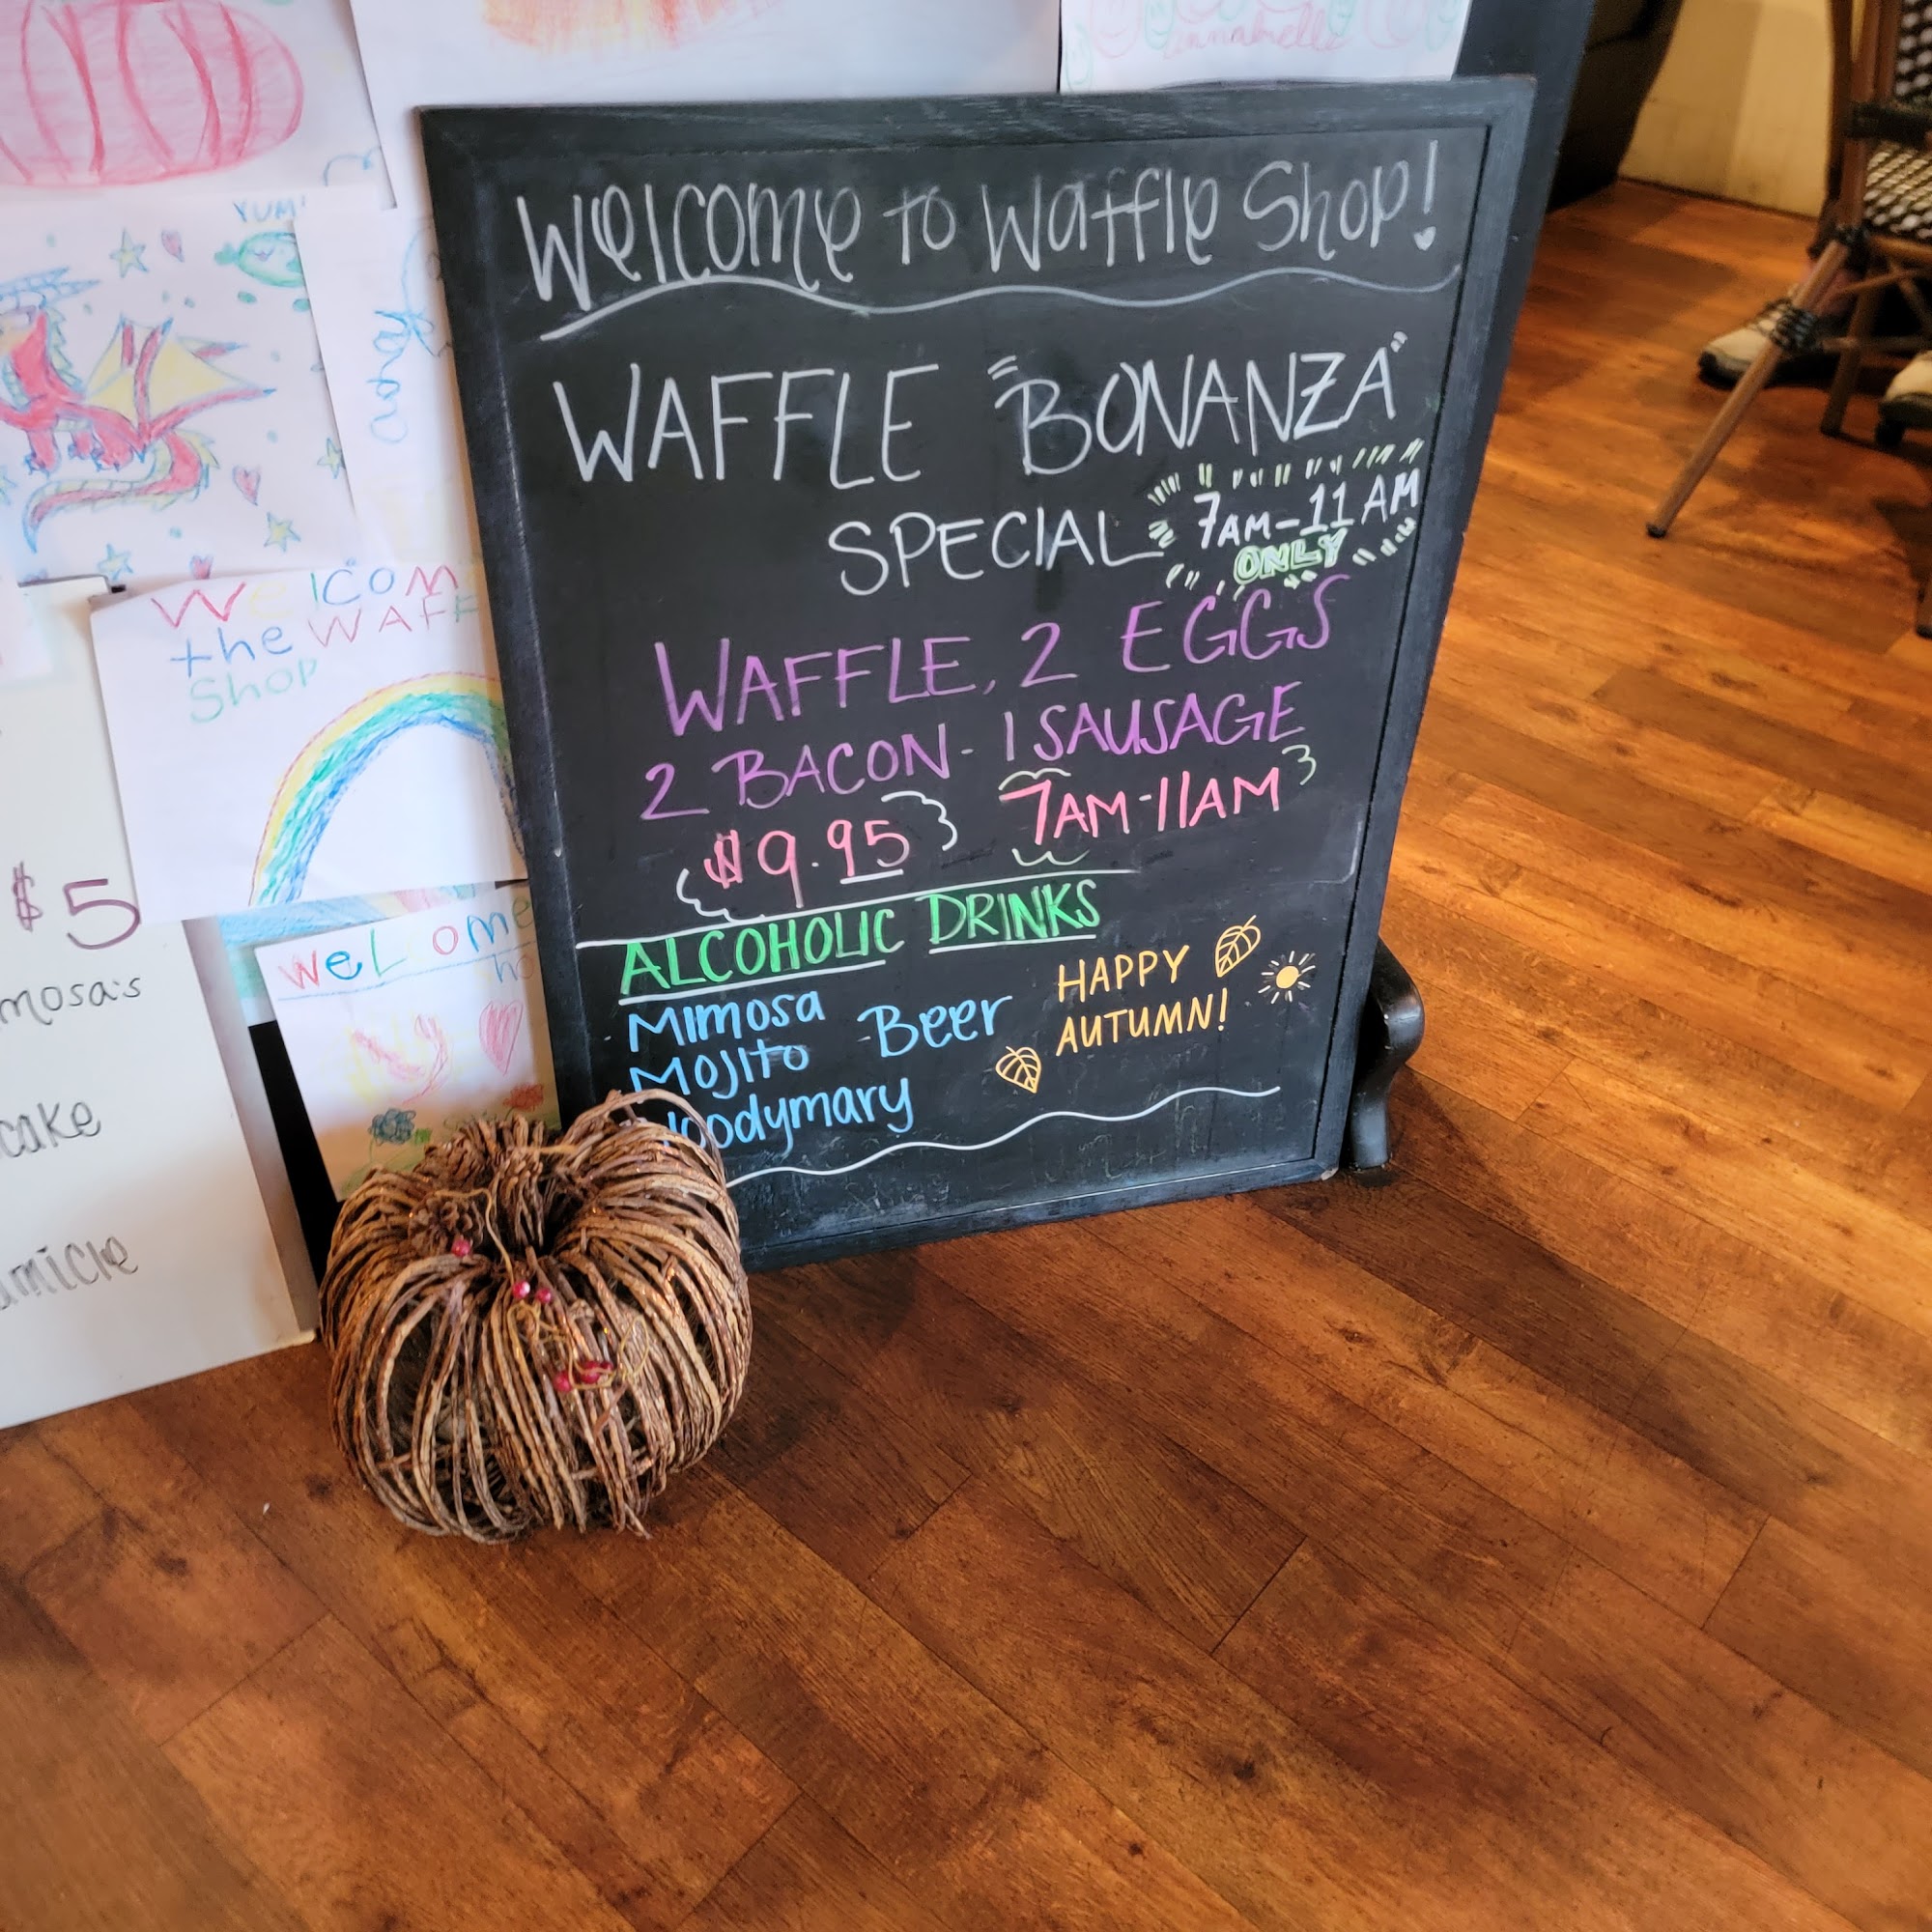 Welcome to Waffle Shop!
WAFFLE "BONANZA"
SPECIAL
7AM-11AM
ONLY
WAFFLE, 2 EGGS
2 BACON - 1 SAUSAGE
$9.95 7AM-11AM
ALCOHOLIC DRINKS
Mimosa
Mojito
Beer
HAPPY
AUTUMN!
YUM!
the
Shop
weLcome
$5
annabelle